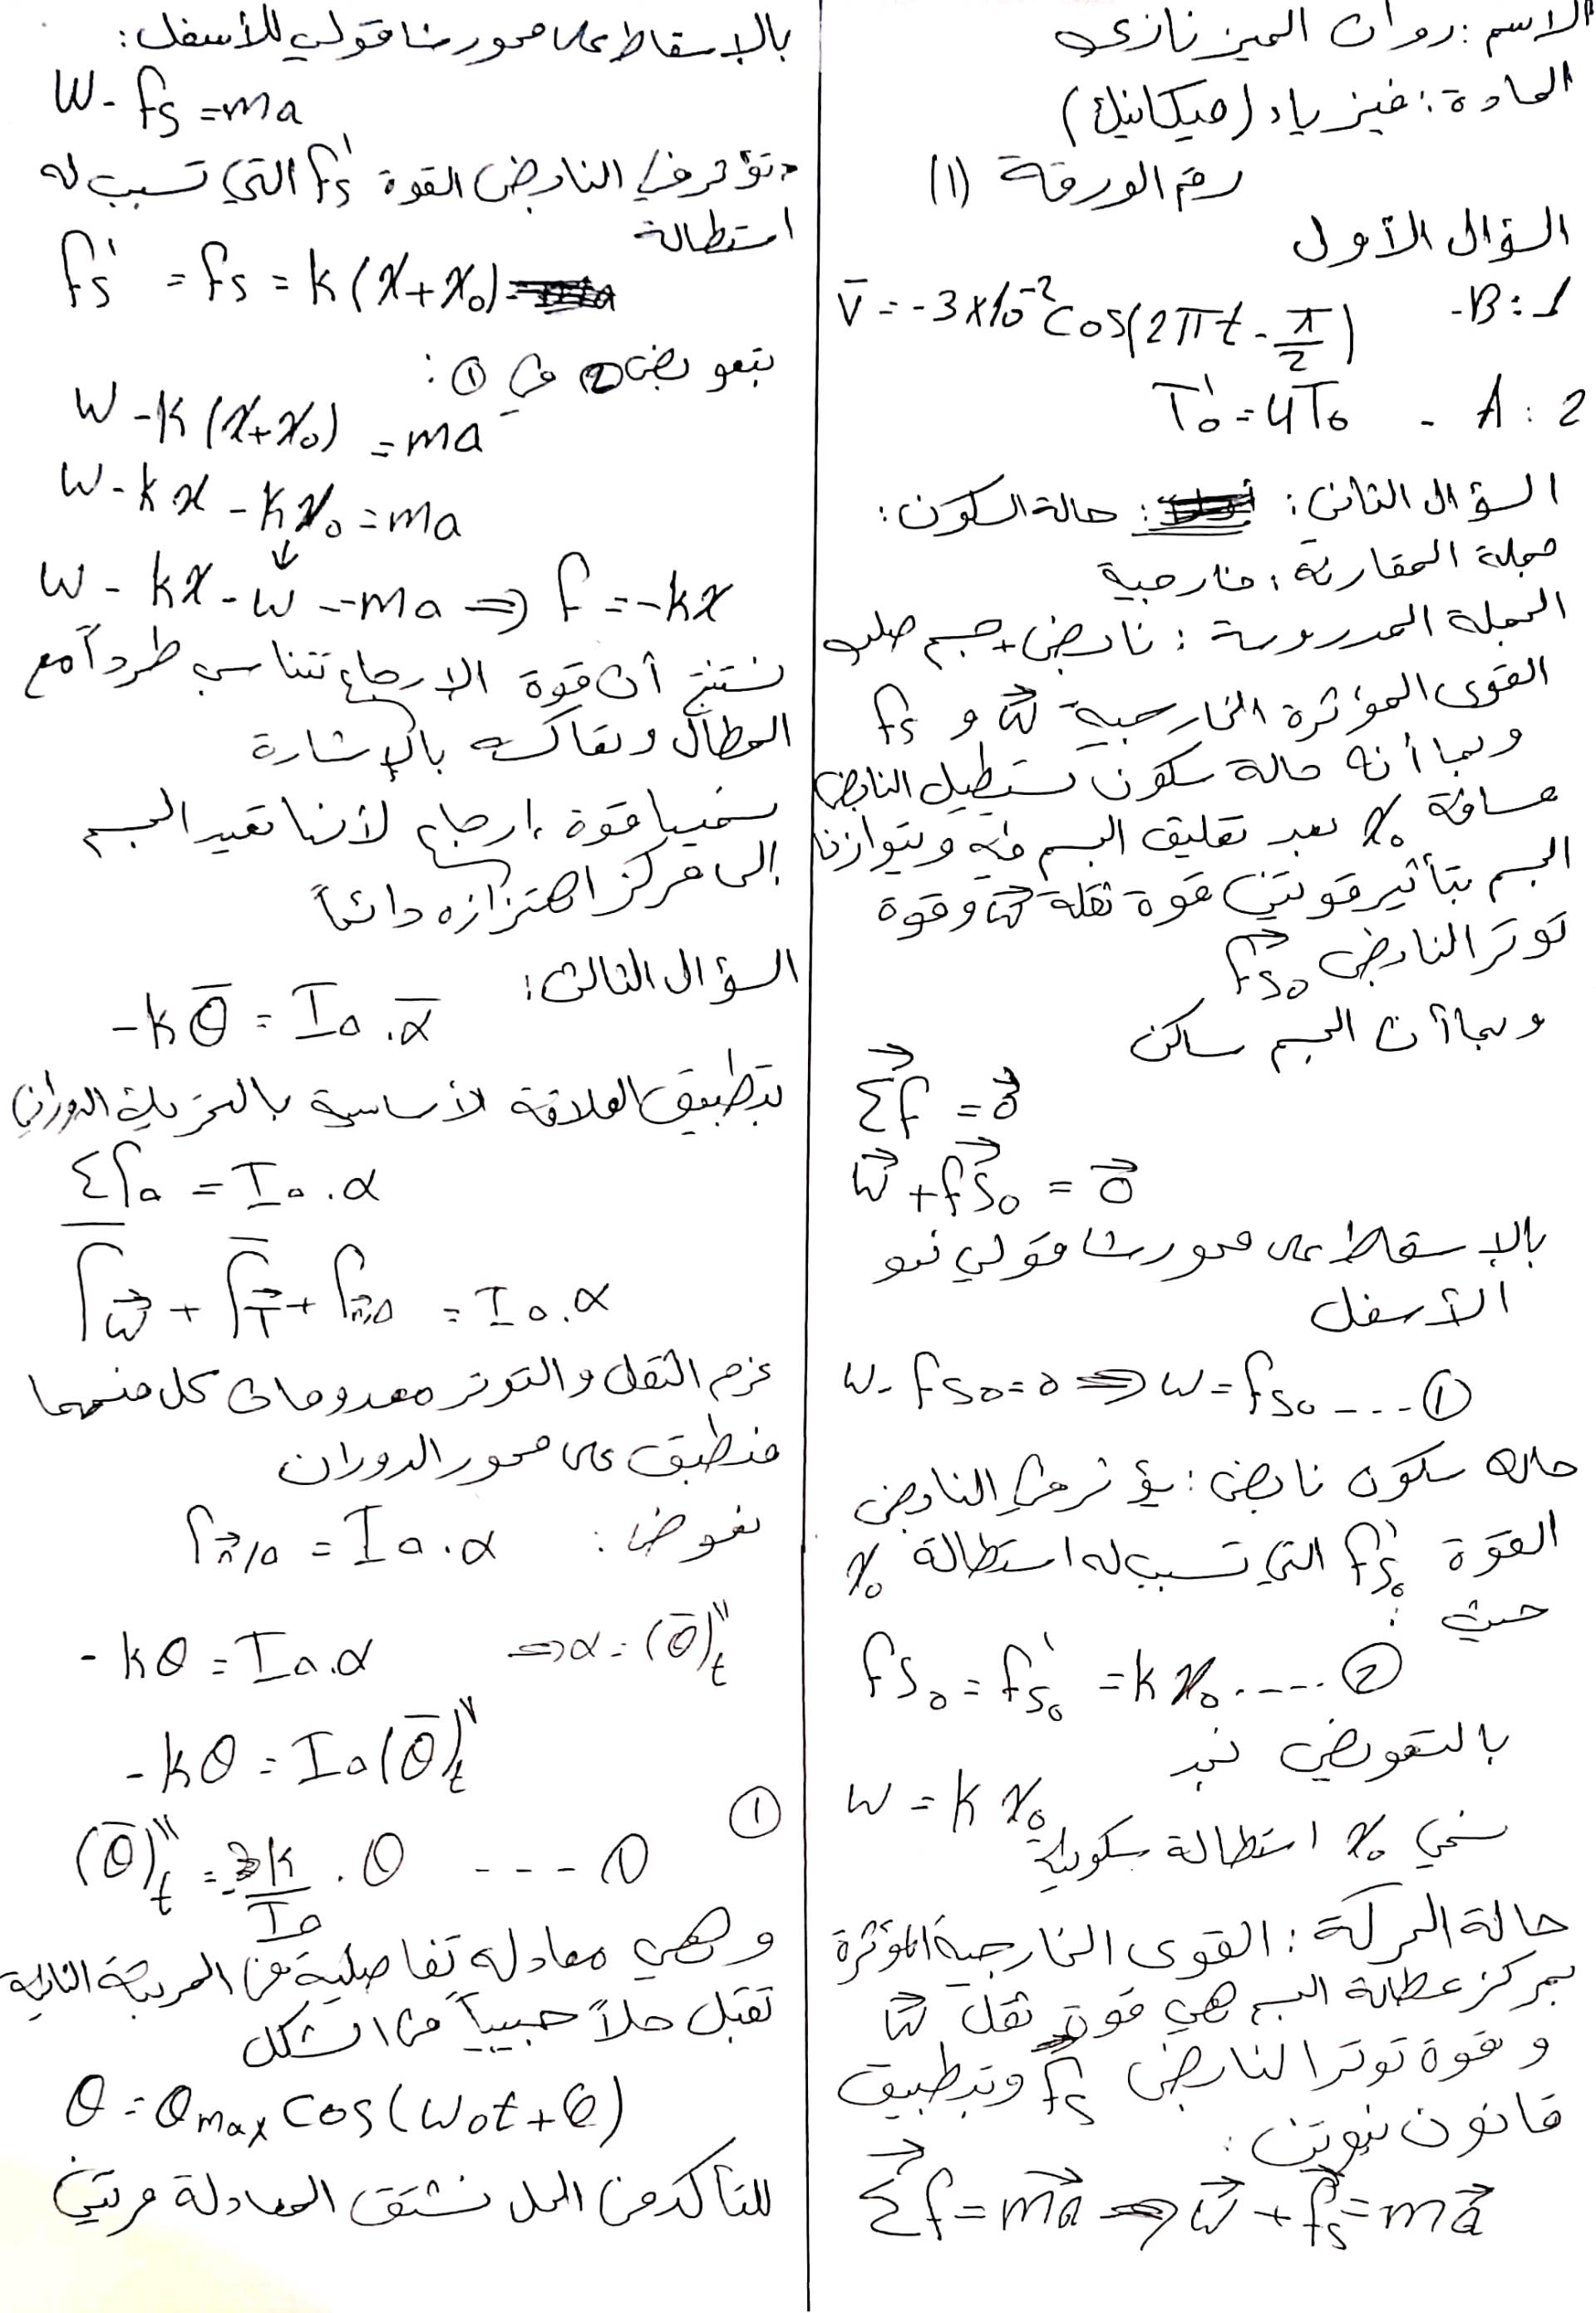 الاسم : روان الميزنازي
المادة : فيزياء (ميكانيك)
رقم الورقة (1)
السؤال الأول
1 : B - V̄ = -3×10⁻² cos(2πt - π/2)
2 : A - T₀' = 4T₀
السؤال الثاني : حالة السكون :
جملة المقارنة : خارجية
الجملة المدروسة : نابض + جسم صلب
القوى المؤثرة الخارجية W⃗ و fs
وبما أنه حالة سكون يستطيل النابض
مسافة x₀ بعد تعليق الجسم فيه ويتوازن
الجسم بتأثير قوتين قوة ثقله W⃗ وقوة
توتر النابض fs₀⃗
وبما أن الجسم ساكن
Σf⃗ = 0⃗
W⃗ + fs₀⃗ = 0⃗
بالإسقاط على محور شاقولي نحو
الأسفل
W - fs₀ = 0 ⇒ W = fs₀ ---- ①
حالة سكون نابض : يؤثر في النابض
القوة fs₀' التي تسبب له استطالة x₀
حيث :
fs₀ = fs₀' = k x₀ ..---- ②
بالتعويض نجد
W = k x₀
نسمي x₀ استطالة سكونية
حالة الحركة : القوى الخارجية المؤثرة
بمركز عطالة الجسم هي قوة ثقل W⃗
و قوة توتر النابض fs⃗ وبتطبيق
قانون نيوتن :
Σf⃗ = ma⃗ ⇒ W⃗ + fs⃗ = ma⃗
بالإسقاط على محور شاقولي للأسفل :
W - fs = ma
وتؤثر في النابض القوة fs' التي تسبب له
استطالة
fs' = fs = k(x + x₀)
بتعويض ② في ① :
W - k(x + x₀) = ma
W - kx - kx₀ = ma
↓
W - kx - W = ma ⇒ f = -kx
نستنتج أن قوة الإرجاع تتناسب طرداً مع
المطال وتعاكسه بالإشارة
نسميها قوة إرجاع لأنها تعيد الجسم
إلى مركز اهتزازه دائماً
السؤال الثالث :
-kθ̄ = I₀.ᾱ
بتطبيق العلاقة الأساسية بالتحريك الدوراني
ΣΓ₀ = I₀.α
Γ̄W⃗ + Γ̄T⃗ + Γη⃗/₀ = I₀.α
عزم الثقل والتوتر معدومان كل منهما
منطبق على محور الدوران
نعوض : Γη⃗/₀ = I₀.α
-kθ = I₀.α ⇒ α = (θ̄)t''
-kθ = I₀(θ̄)t''
①
(θ̄)t'' = -k/I₀ . θ ---- ①
وهي معادلة تفاضلية من المرتبة الثانية
تقبل حلاً جيبياً من الشكل
θ = θmax cos(ω₀t + φ)
للتأكد من الحل نشتق المعادلة مرتين